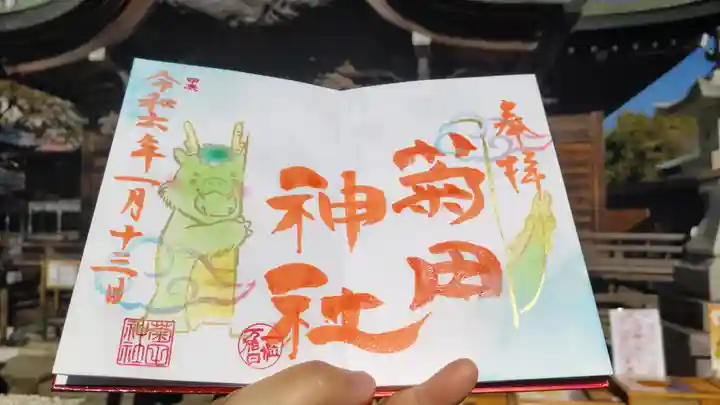 奉拝
菊田
神社
令和六年一月十三日
菊田
神社